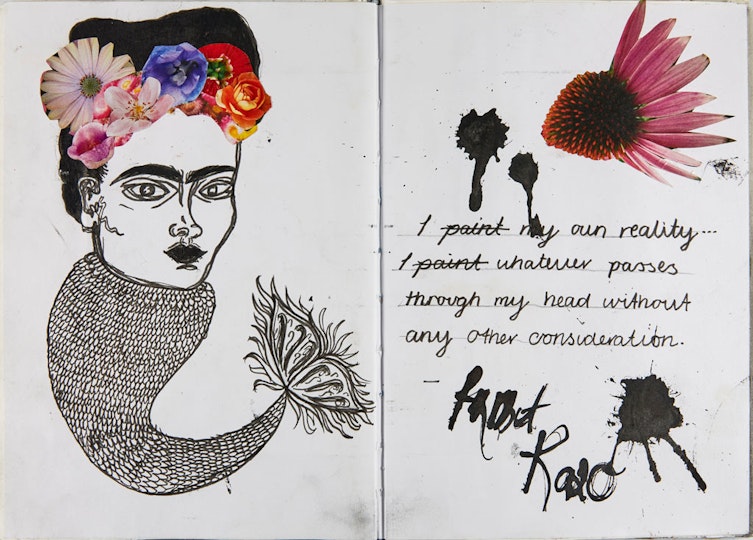 I paint my own reality...
I paint whatever passes
through my head without
any other consideration.